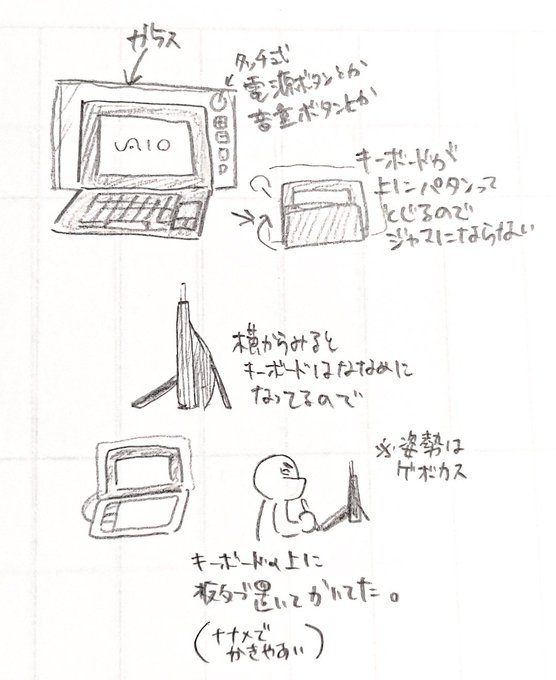 ガラス
タッチ式
電源ボタンとか
音量ボタンとか
VAIO
キーボードが
上にパタンって
とじるので
ジャマにならない
横からみると
キーボードはななめに
なってるので
※姿勢は
ゲボカス
キーボードの上に
板タブ置いてかいてた。
(ナナメで
かきやすい)